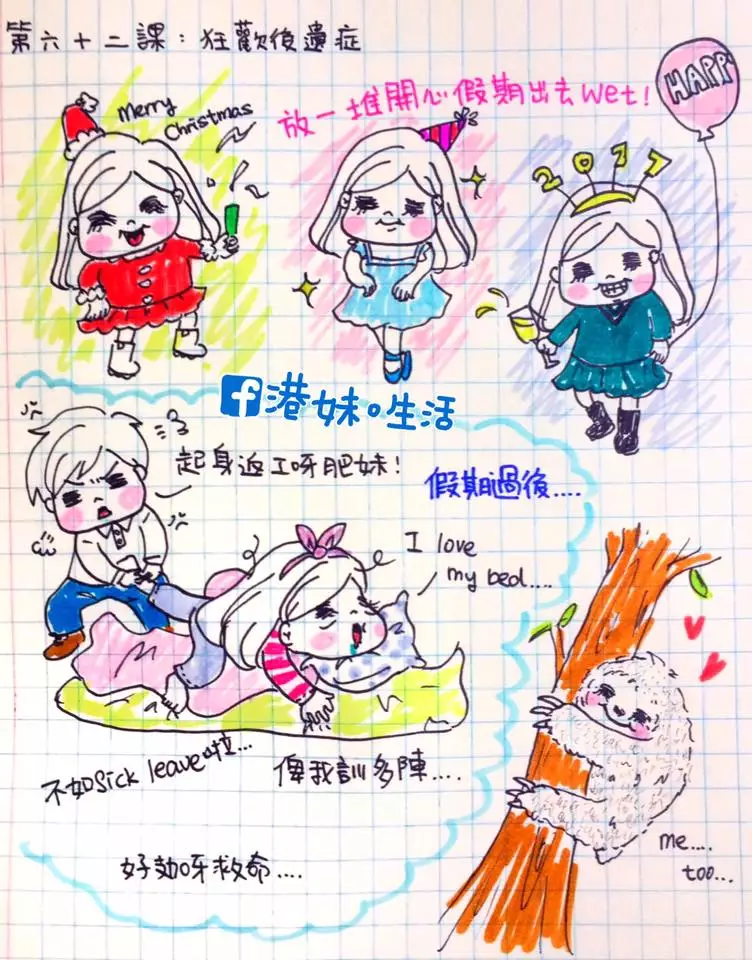 第六十二課：狂歡後遺症
Merry
Christmas
放一堆開心假期出去wet！
HAPP
2017
港妹の生活
起身返工呀肥妹！
假期過後....
I love
my bed....
不如sick leave啦...
俾我訓多陣....
好攰呀救命....
me....
too...